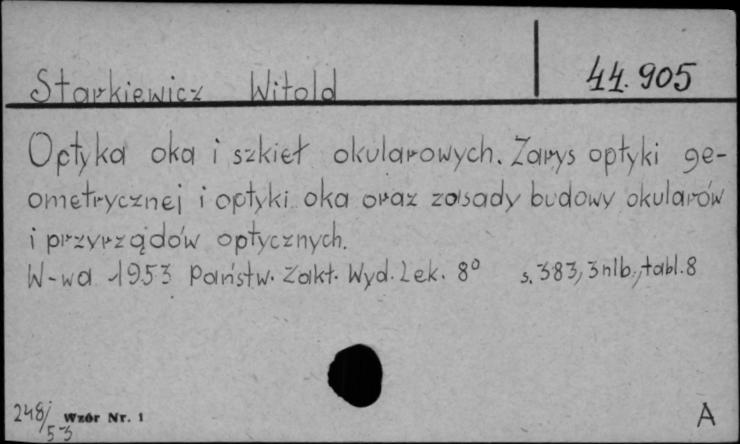 Starkiewicz Witold 44.905
Optyka oka i szkieł okularowych. Zarys optyki ge-
ometrycznej i optyki oka oraz zasady budowy okularów
i przyrządów optycznych.
W-wa 1953 Państw. Zakł. Wyd. Lek. 8° s. 383, 3 nlb., tabl. 8
248/53 Wzór Nr. 1 A